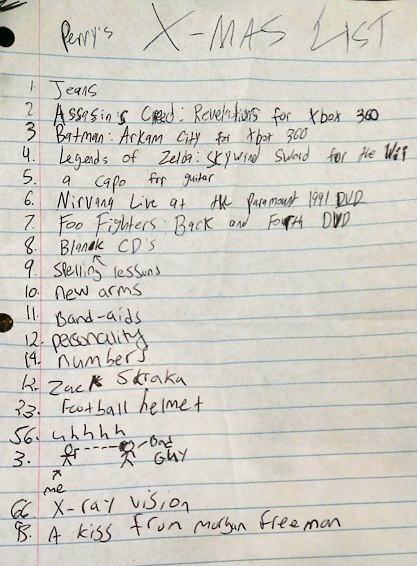 Perry's X-MAS LIST
1. Jeans
2 Assasin's Creed: Revelations for Xbox 360
3 Batman: Arkam City for Xbox 360
4. Legends of Zelda: Skywind Sword for the Wii
5. a capo for guitar
6. Nirvana Live at the Paramount 1991 DVD
7. Foo Fighters: Back and Fourth DVD
8. Blank CD's
9. spelling lessuns
10. new arms
11. Band-aids
12. personality
14. numbers
12. Zack Straka
23. Football helmet
56. uhhhh
3. Bad
Guy
me
66. X-ray vision
93. A kiss from morgan freeman